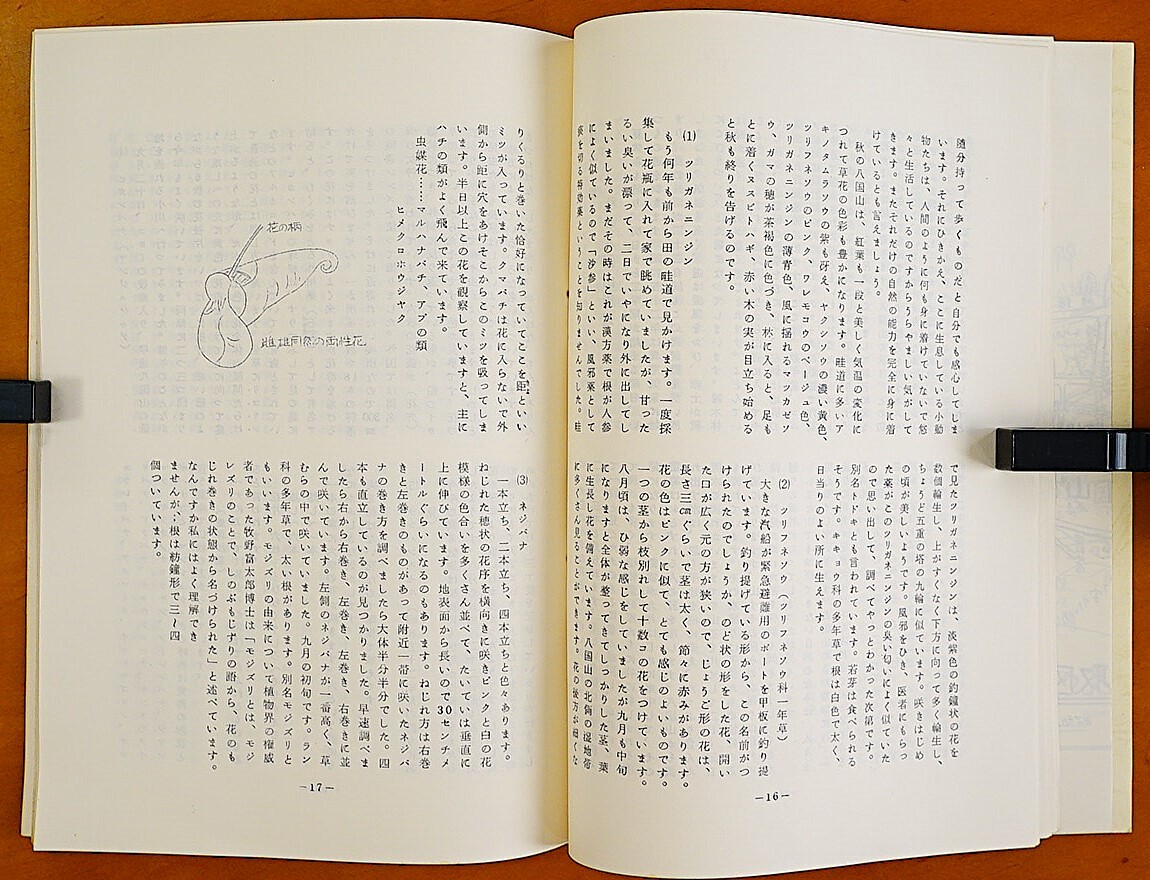 随分持って歩くものだと自分でも感心してしま
います。それにひきかえ、ここに生息している小動
物たちは、人間のように何も身に着けていないで悠
々と生活しているのですからうらやましい気がして
きます。またそれだけの自然の能力を完全に身に着
けているとも言えましょう。
秋の八国山は、紅葉も一段と美しく気温の変化に
つれて草花の色彩も豊かになります。畦道に多いア
キノタムラソウの紫も冴え、ヤクシソウの濃い黄色、
ツリフネソウのピンク、ワレモコウのベージュ色、
ツリガネニンジンの薄青色、風に揺れるマツカゼソ
ウ、ガマの穂が茶褐色に色づき、林に入ると、足も
とに着くヌスビトハギ、赤い木の実が目立ち始める
と秋も終りを告げるのです。
(1) ツリガネニンジン
もう何年も前から田の畦道で見かけます。一度採
集して花瓶に入れて家で眺めていましたが、甘った
るい臭いが漂って、二日でいやになり外に出してし
まいました。まだその時はこれが漢方薬で根が人参
によく似ているので「沙参」といい、風邪薬として
痰を切る特効薬ということを知りませんでした。畦
で見たツリガネニンジンは、淡紫色の釣鐘状の花を
数個輪生し、上がすくなく下方に向って多く輪生し、
ちょうど五重の塔の九輪に似ています。咲きはじめ
の頃が美しいようです。風邪をひき、医者にもらっ
た薬がこのツリガネニンジンの臭い匂いによく似ていた
ので思い出して、調べてやっとわかった次第です。
別名トトキとも言われています。若芽は食べられる
そうです。キキョウ科の多年草で根は白色で太く、
日当りのよい所に生えます。
(2) ツリフネソウ(ツリフネソウ科一年草)
大きな汽船が緊急避難用のボートを甲板に釣り提
げています。釣り提げている形から、この名前がつ
けられたのでしょうか、のど状の形をした花、開い
た口が広く元の方が狭いので、じょうご形の花は、
長さ三㎝ぐらいで茎は太く、節々に赤みがあります。
花の色はピンクに似て、とても感じのよいものです。
一つの茎から枝別れして十数コの花をつけています。
八月頃は、ひ弱な感じをしていましたが九月も中旬
になりますと全体が整ってきてしっかりした茎、葉
に生長し花を備えています。八国山の北側の湿地帯
に多くさん見ることができます。花の後方が細くな
—16—
りくるりと巻いた恰好になっていてここを距、といい
ミツが入っています。クマバチは花に入らないで外
側から距に穴をあけそこからこのミツを吸ってしま
います。半日以上この花を観察していますと、主に
ハチの類がよく飛んで来ています。
虫媒花……マルハナバチ、アブの類
ヒメクロホウジャク
花の柄
雌雄同熟の両性花
(3) ネジバナ
一本立ち、二本立ち、四本立ちと色々あります。
ねじれた穂状の花序を横向きに咲きピンクと白の花
模様の色合いを多くさん並べて、たいていは垂直に
上に伸びています。地表面から長いので30センチメ
ートルぐらいになるのもあります。ねじれ方は右巻
きと左巻きのものがあって附近一帯に咲いたネジバ
ナの巻き方を調べましたら大体半分半分でした。四
本も直立しているのが見つかりました。早速調べま
したら右から右巻き、左巻き、左巻き、右巻きに並
んで咲いています。左側のネジバナが一番高く、草
むらの中で咲いていました。九月の初旬です。ラン
科の多年草で、太い根があります。別名モジズリと
もいいます。モジズリの由来について植物界の権威
者であった牧野富太郎博士は「モジズリとは、モジ
レズリのことで、しのぶもじずりの語から、花のも
じれ巻きの状態から名づけられた」と述べています。
なんですか私にはよく理解でき
ませんが、根は紡錘形で三〜四
個ついています。
—17—